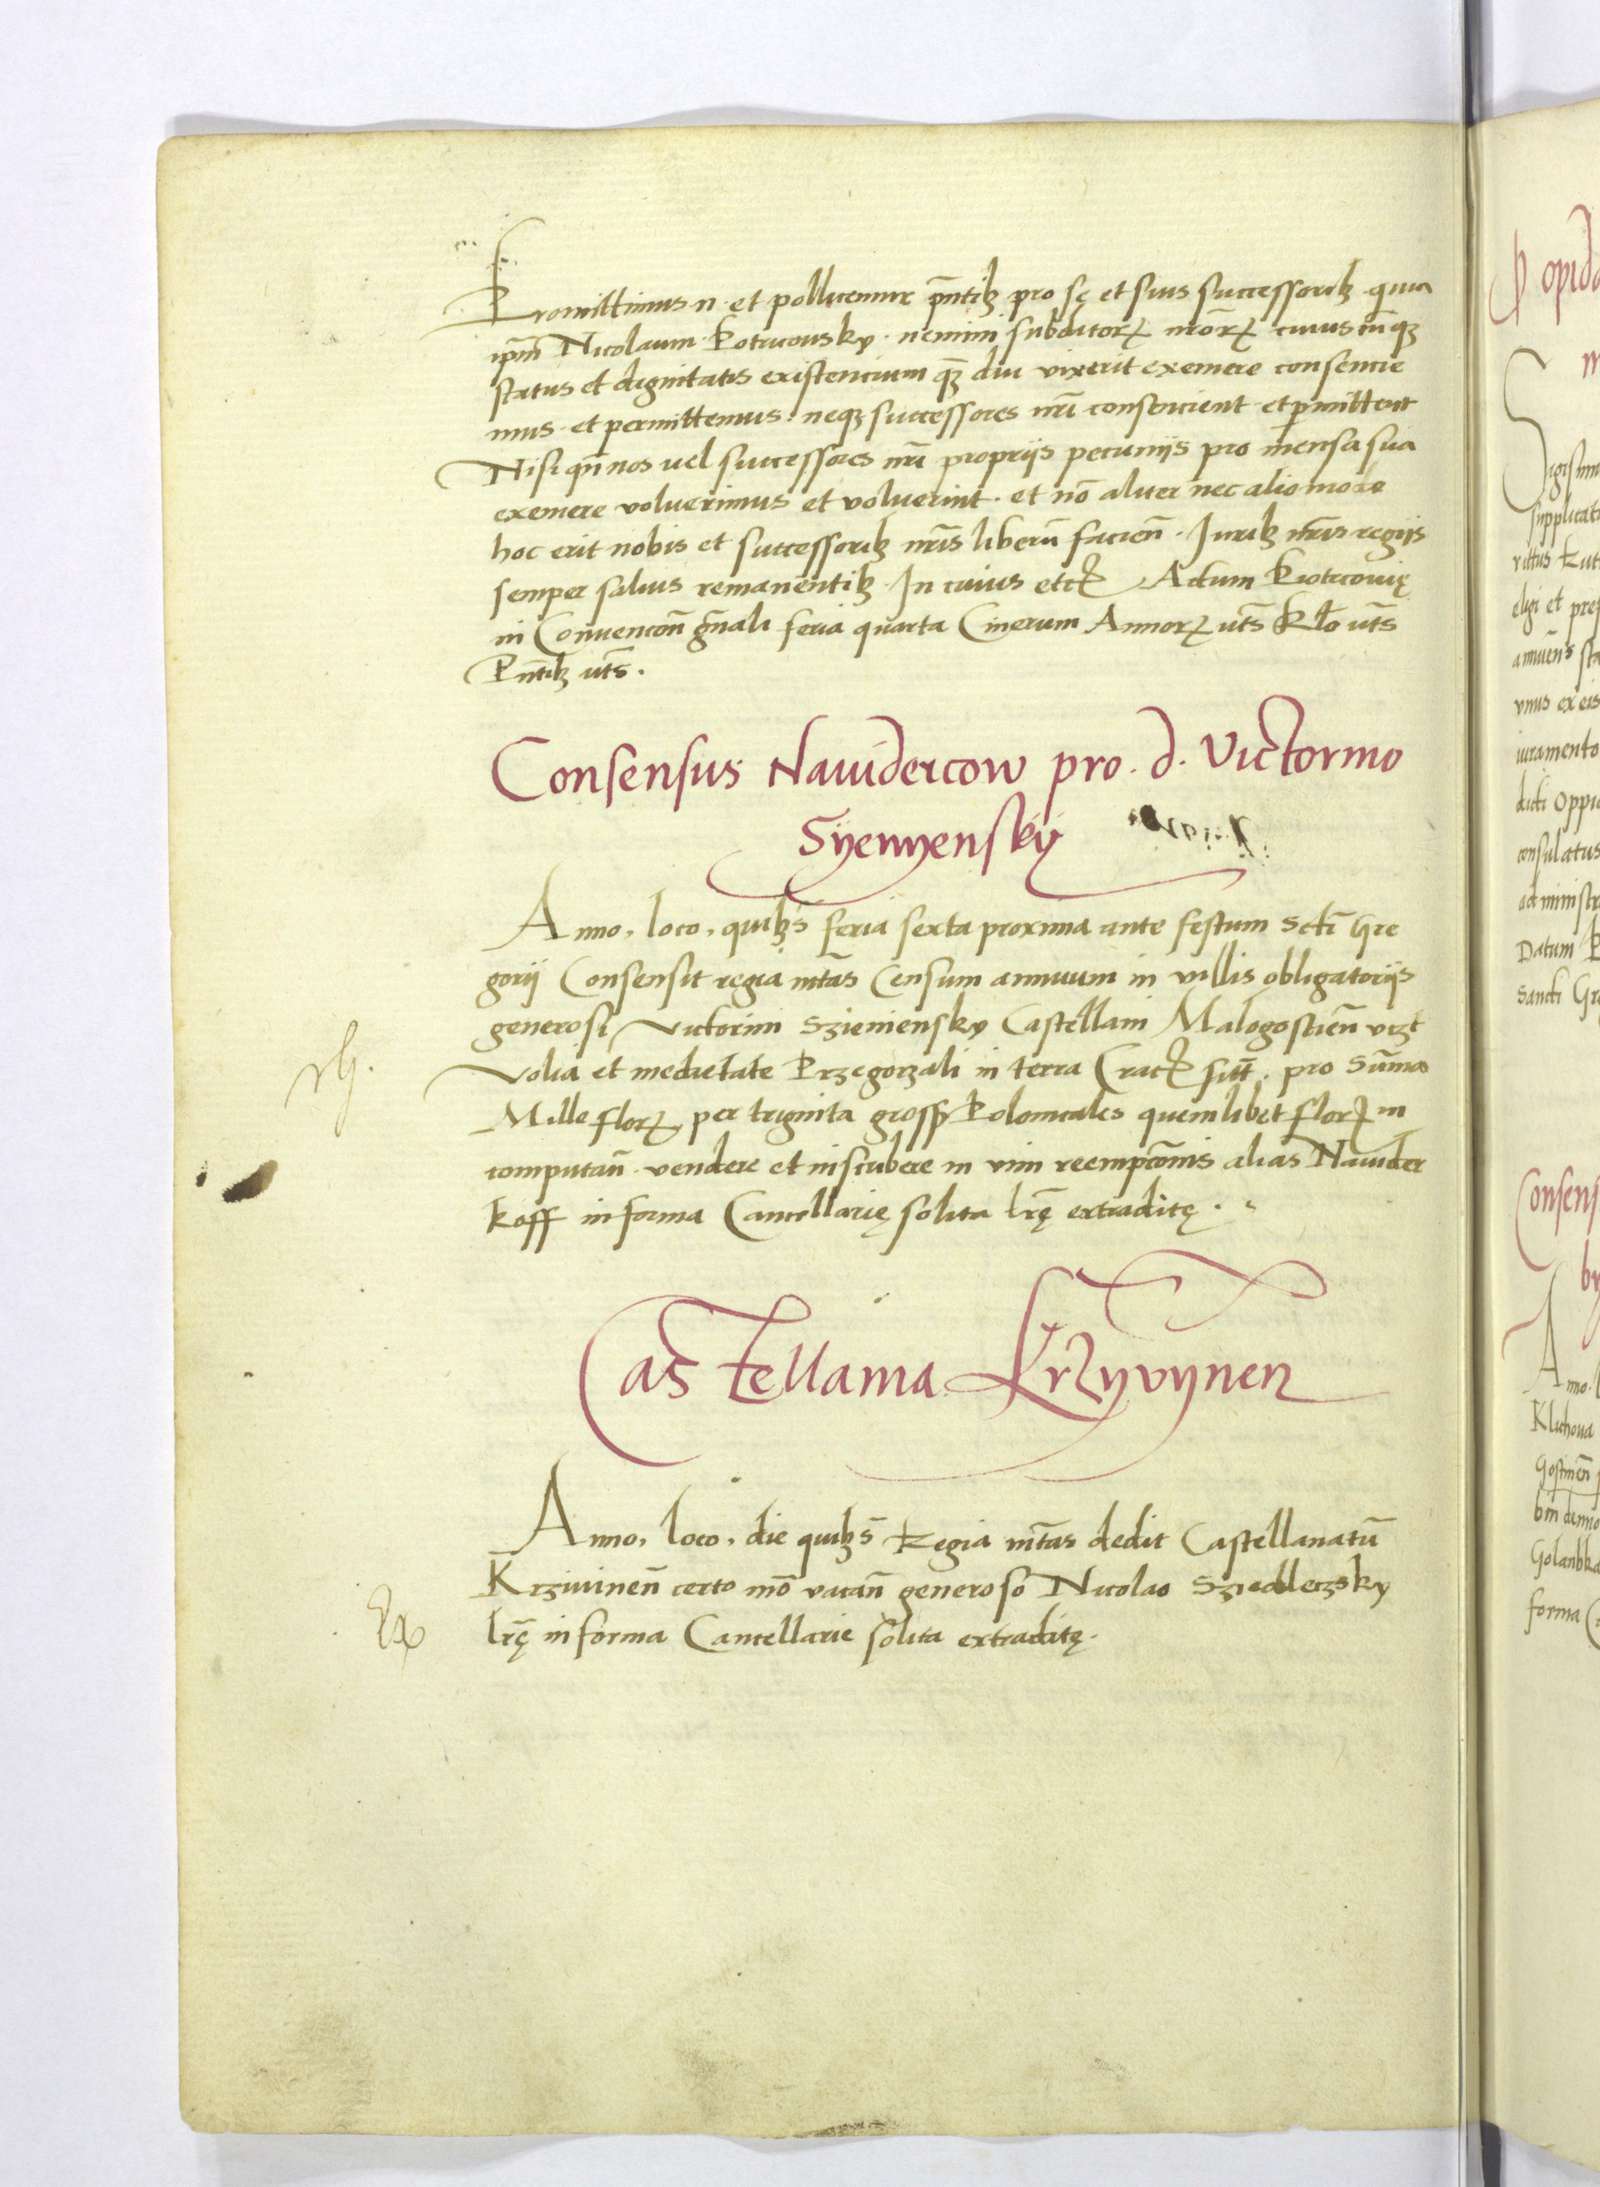 Promittimus n. et pollicemur pn̄tibꝫ pro sę et suis successoribꝫ quia
ipm̄ Nicolaum Potrcowsky nemini subditorꝝ nr̄orꝝ cuiuscūqꝫ
status et dignitatis existencium qꝫ diu vixerit exemere consencie
mus et permittemus neqꝫ successores nrī consencient et ꝑmittent
Nisi qn̄ nos vel successores nrī propriis pecuniis pro mensa sua
exemere voluerimus et voluerint et nō aliter nec alio modo
hoc erit nobis et successoribꝫ nrīs liberū facien̄. Iuribꝫ nrīs regiis
semper salvis remanentibꝫ In cuius etcꝫ Actum Piotrcovię
in Conuencōn gn̄ali feria quarta Cinerum Annorꝝ vts̄ Kło vts̄
Pn̄tibꝫ vts̄.
Consensus Nauidercow pro. d. Victorino
Syenyensky
Anno, loco, quibꝫs feria sexta proxima ante festum Sctī Gre
gorij Consensit regia mtās Censum annuum in villis obligatoriis
generosi Victorini Szieniensky Castellani Malogoscien̄ vrzt
Volia et medietate Przegorzali in terra Cracꝫ sitꝫ. pro Sūma
Mille florꝝ per triginta gross Polonicales quemlibet florꝫ in
computan̄ vendere et inscribere in vim reempcōnis alias Nauider
koff in forma Cancellarię solita lrę̄ extraditę.
Castellania Krzyvynen
Anno, loco, die quibꝫs Regia mtās dedit Castellanatū
Krzivinen̄ certo mō vacan̄ generoso Nicolao Sziedleczsky
lrę̄ in forma Cancellarie solita extraditę.
Ex
opida
Sigismu
supplicati
eligi et pref
annuens sta
vnus ex eis
iuramento
dicti Oppi
consulatus
administr
Datum P
Sancti Gre
Consens
Anno. l
Klichova
Gostinen̄
Golanbka
forma C